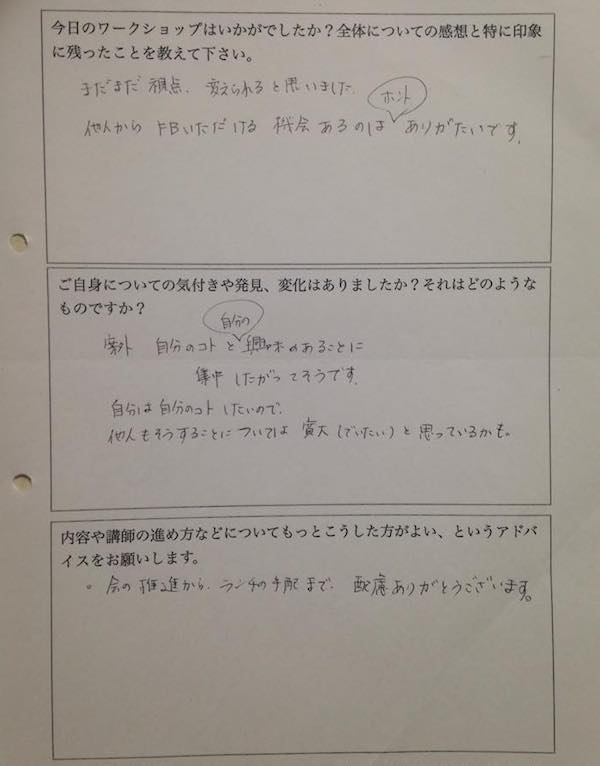 今日のワークショップはいかがでしたか？全体についての感想と特に印象
に残ったことを教えて下さい。
まだまだ 視点、変えられると思いました
ホント
他人から FBいただける 機会 あるのは ありがたいです。
ご自身についての気付きや発見、変化はありましたか？それはどのような
ものですか？
自分の
案外 自分のコト と 興味のあることに
集中 したがってそうです。
自分は 自分のコト したいので、
他人もそうすることに ついては 寛大（でいたい）と 思っているかも。
内容や講師の進め方などについてもっとこうした方がよい、というアドバ
イスをお願いします。
。会の推進から、ランチの手配まで、配慮ありがとうございます。